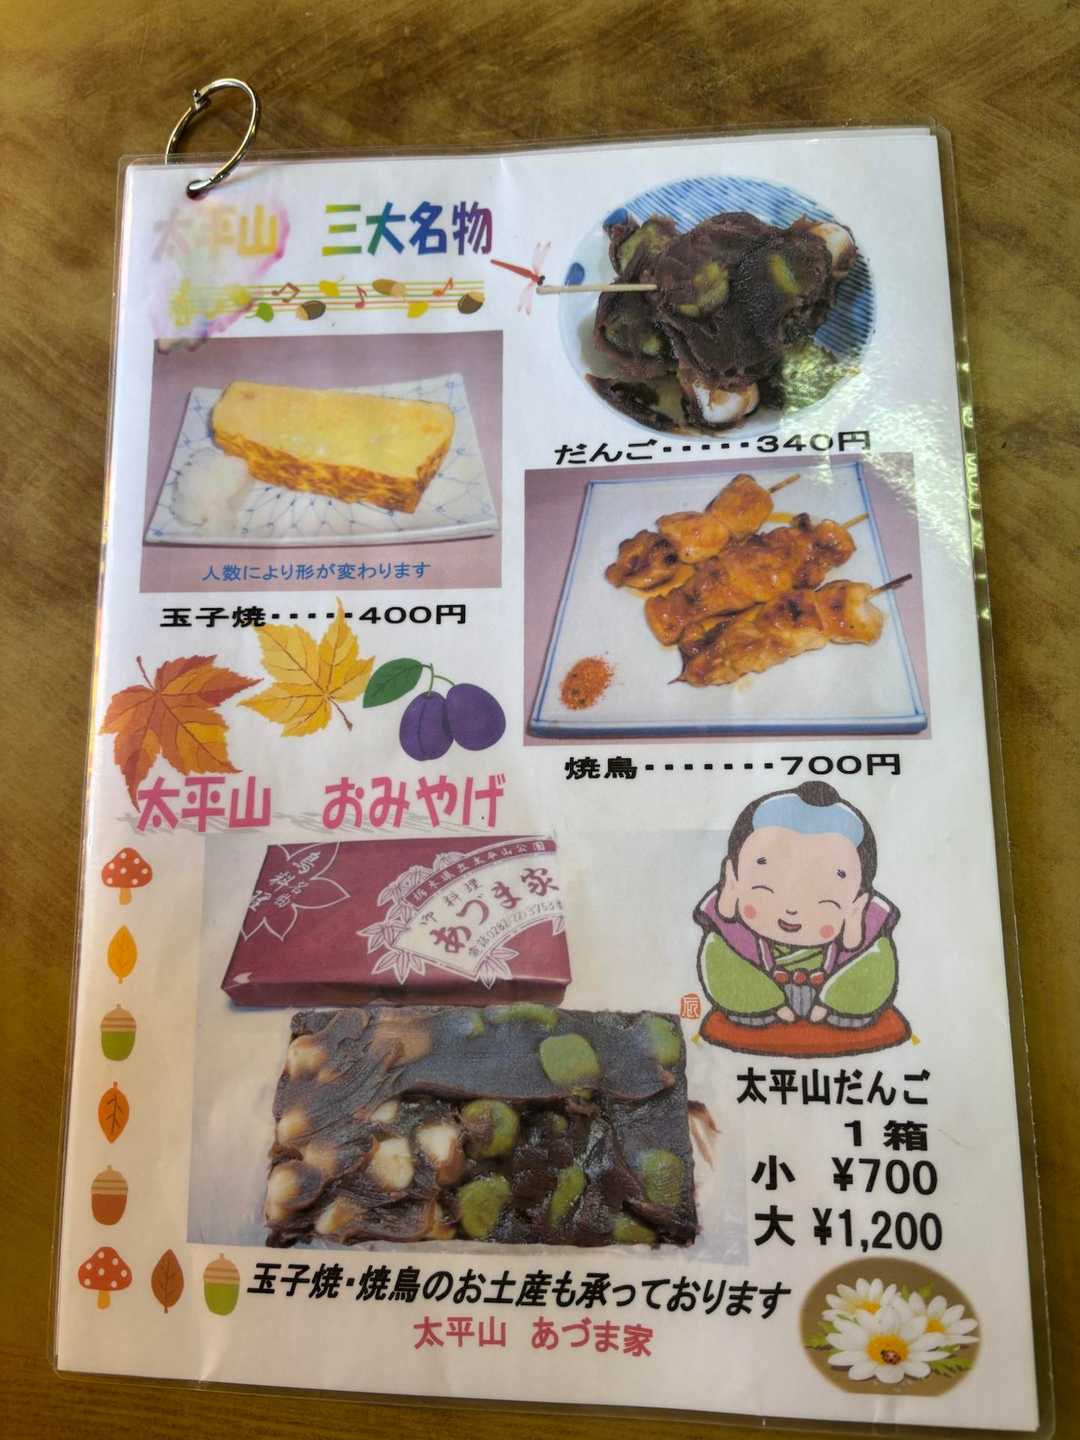 太平山　三大名物
だんご・・・・・340円
人数により形が変わります
玉子焼・・・・・400円
焼鳥・・・・・・・700円
太平山　おみやげ
栃木県立太平山公園
御料理
あづま家
電話0282-22-3753
太平山だんご
1 箱
小　¥700
大 ¥1,200
玉子焼・焼鳥のお土産も承っております
太平山　あづま家